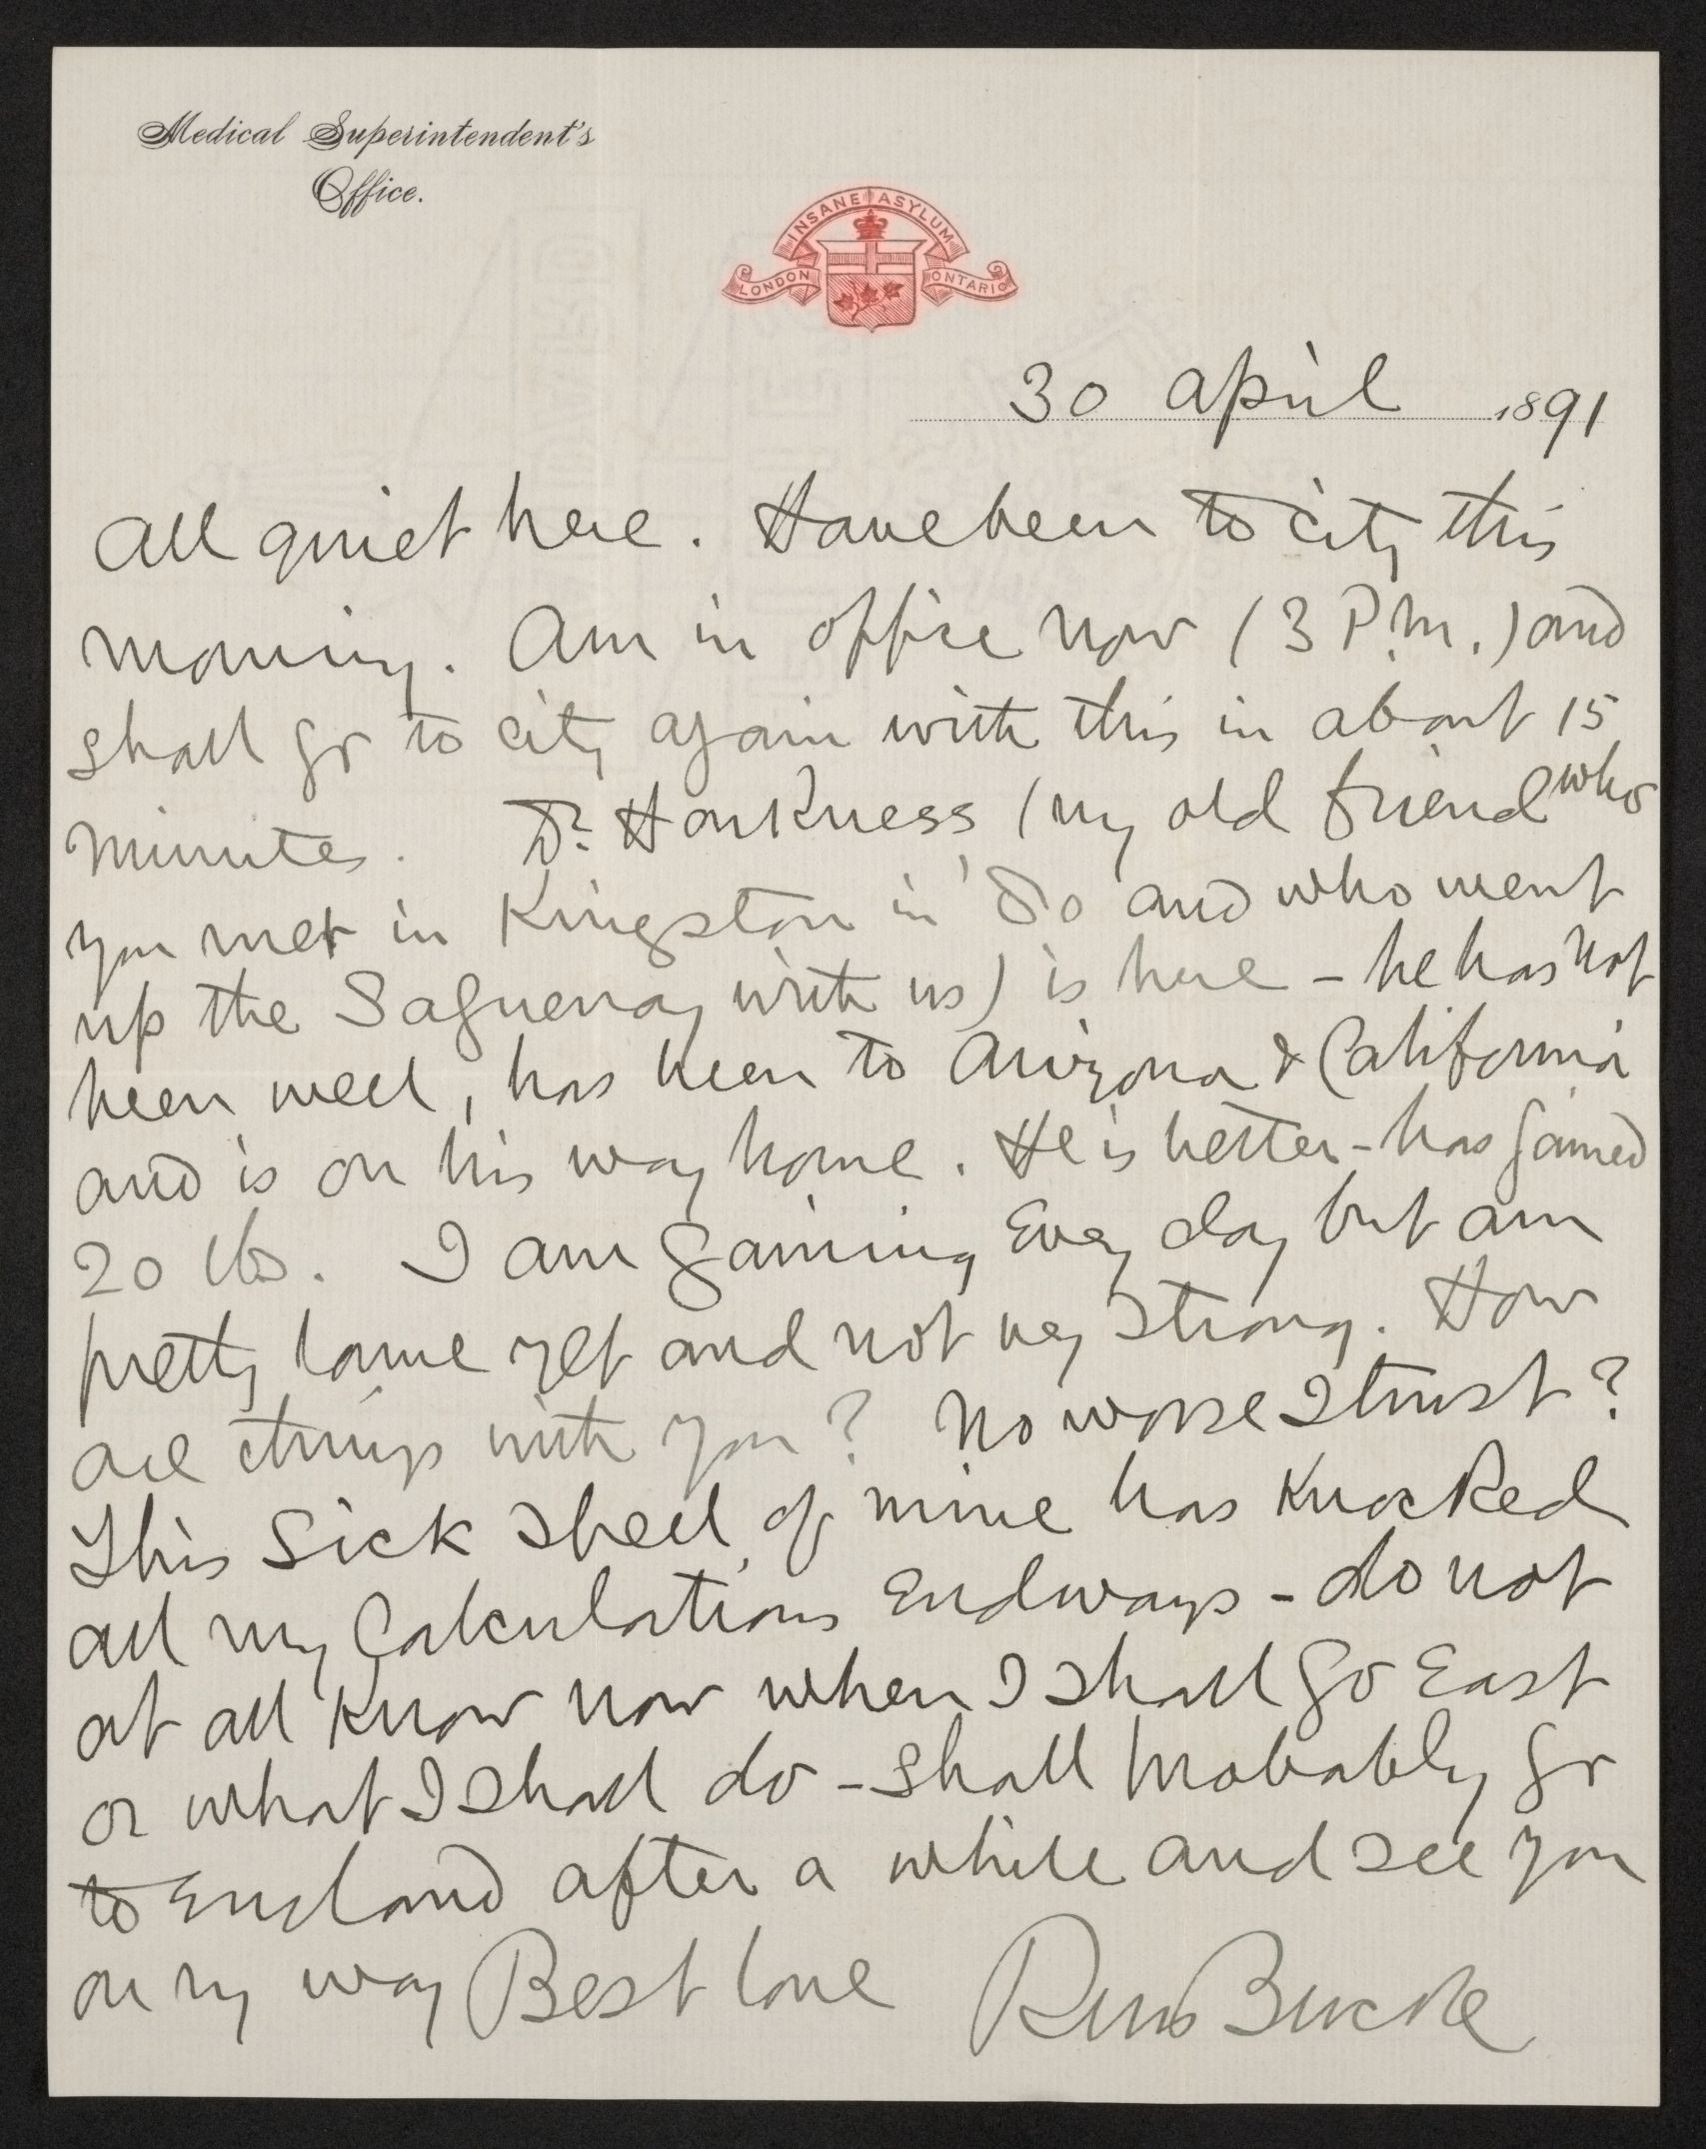 Medical Superintendent's
Office.
INSANE ASYLUM
LONDON ONTARIO
30 April 1891
All quiet here. Have been to city this
morning. Am in office now (3 P.M.) and
shall go to city again with this in about 15
minutes. Dr Harkness (my old friend who
you met in Kingston in '80 and who went
up the Saguenay with us) is here – he has not
been well, has been to Arizona & California
and is on his way home. He is better – has gained
20 lbs. I am gaining every day but am
pretty lame yet and not very strong. How
are things with you? No worse I trust?
This sick spell of mine has knocked
all my calculations endways – do not
at all know now when I shall go East
or what I shall do – shall probably go
to England after a while and see you
on my way Best love RM Bucke